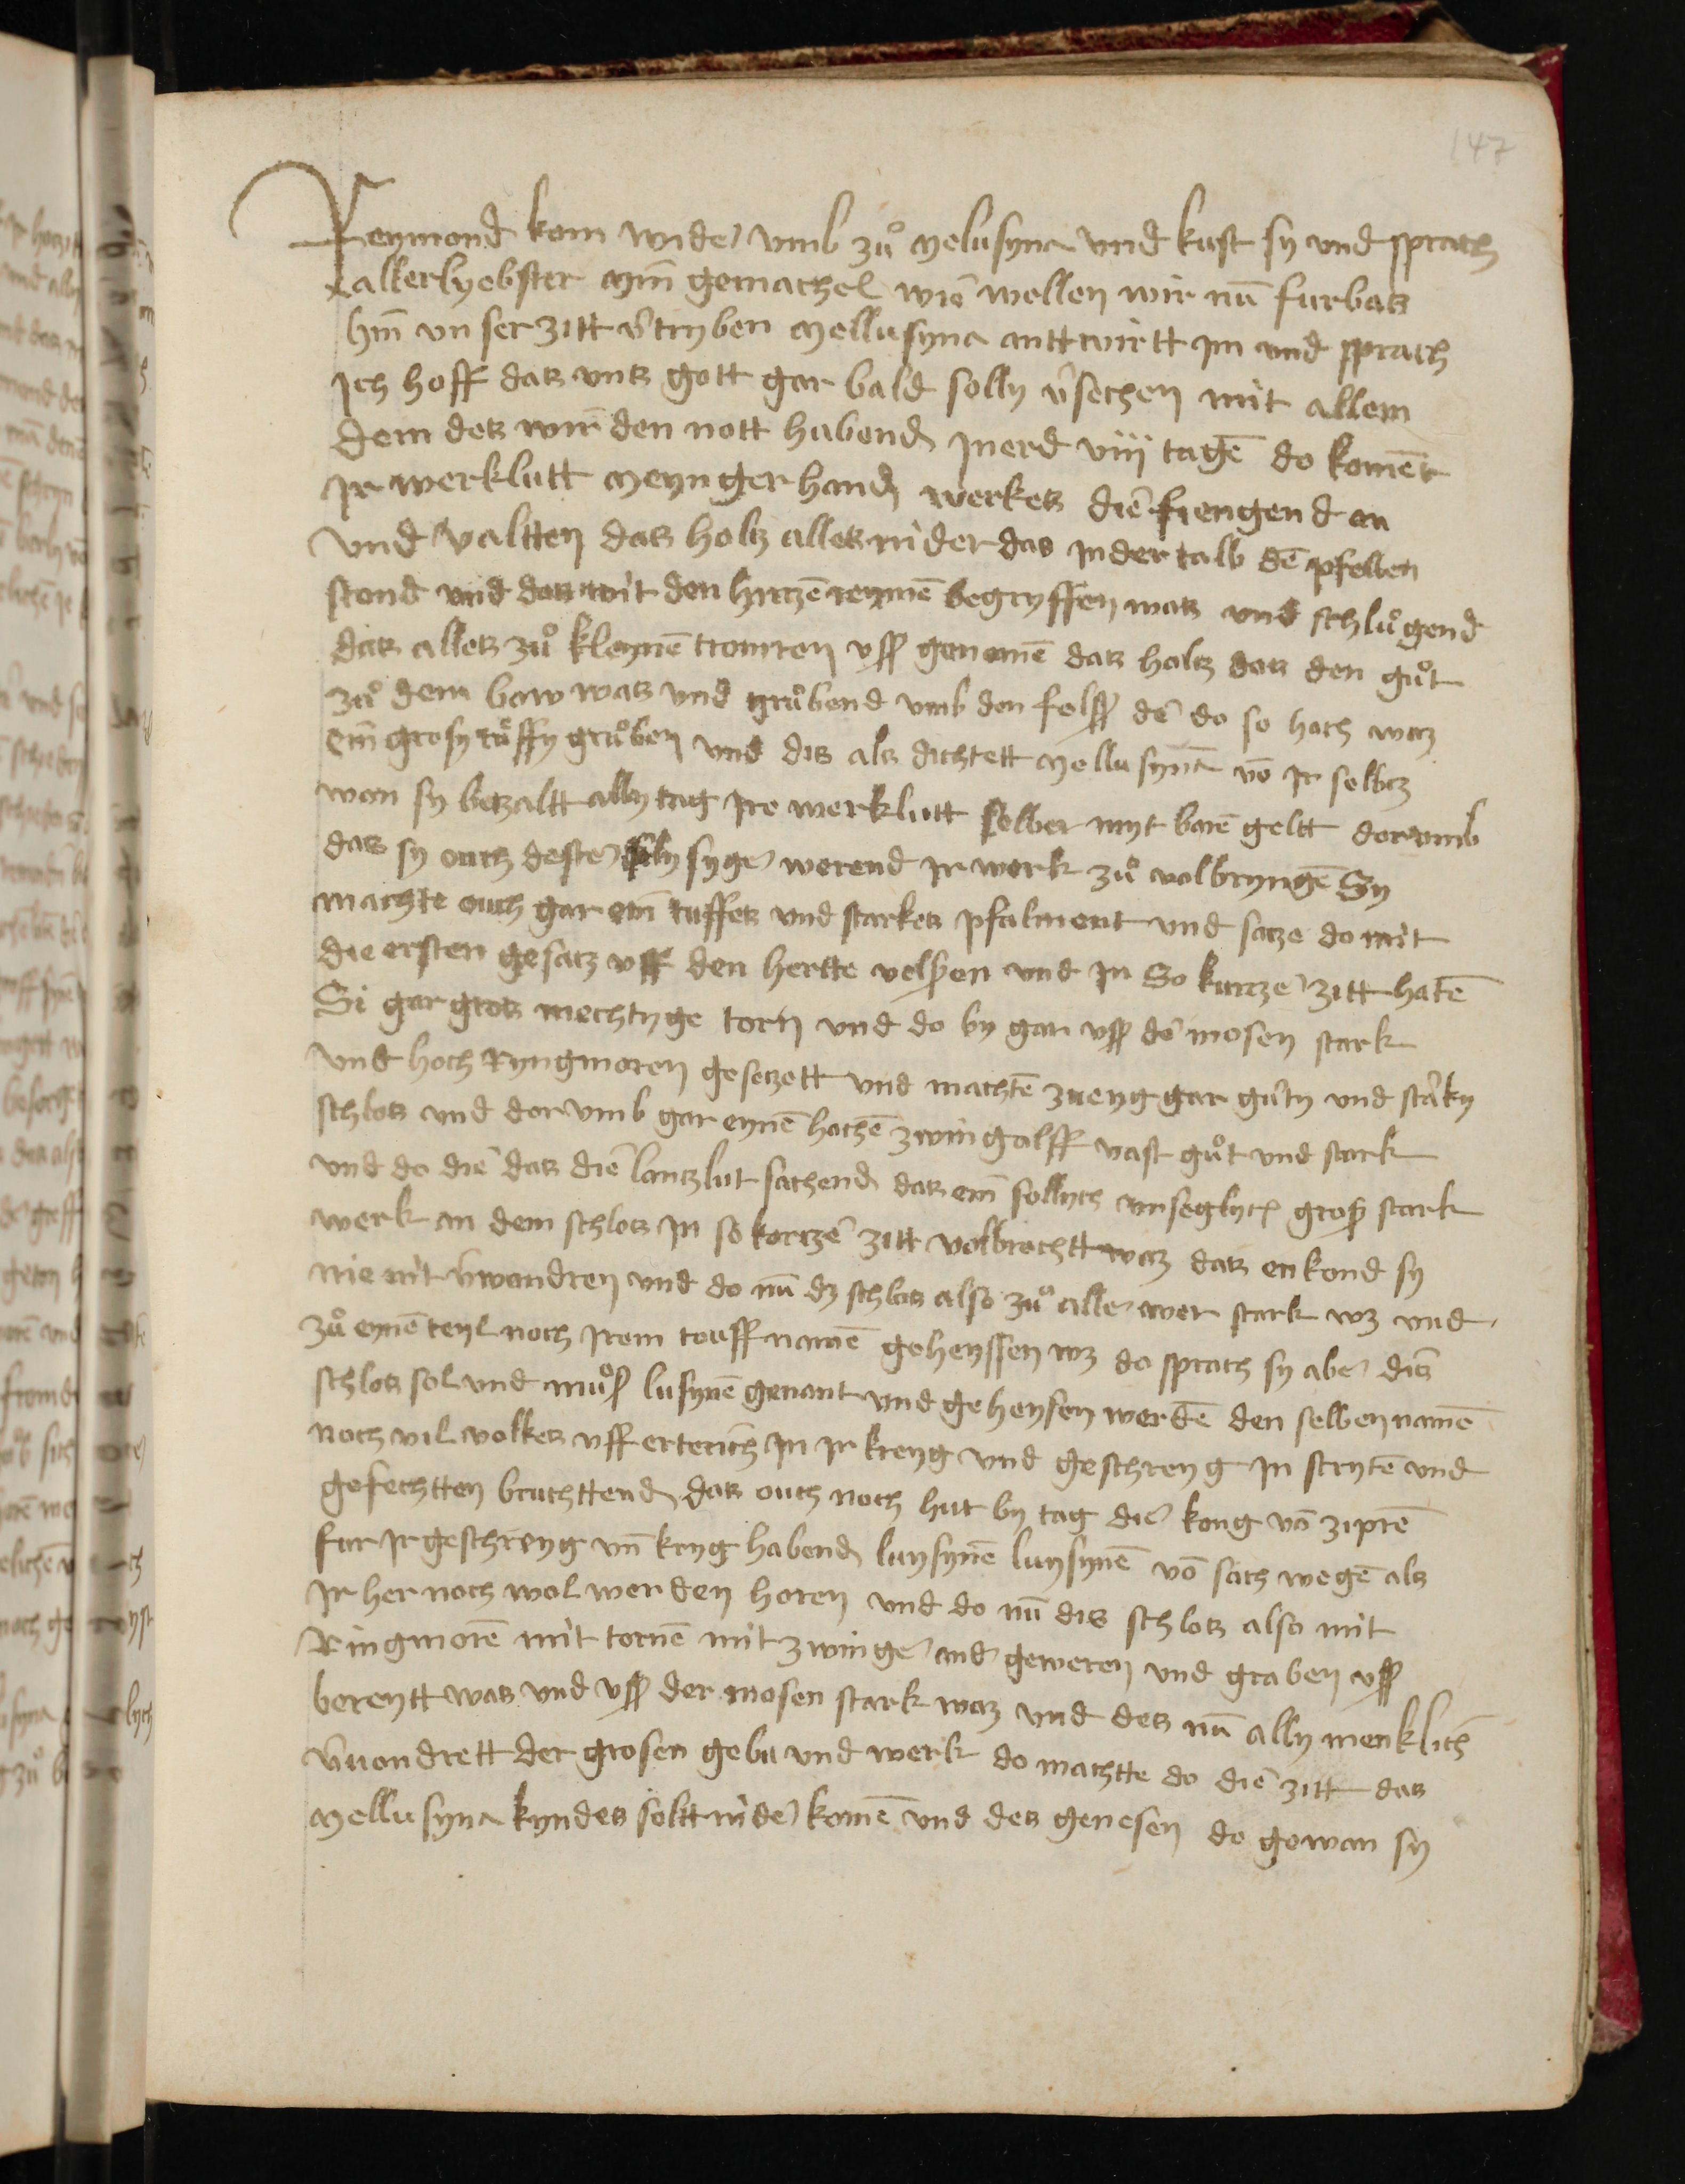 147
Reymond kom wyder umb zuͦ Melusyna und kust sy und sprach
allerlyebster myn̄ gemachel wie wellen wir nū furbas
hin̄ unser zitt v̄tryben Mellusyna anttwirtt im und sprach
Ich hoff das uns gott gar bald solly v̄sechen mit allem
dem des wir den nott habend inerd viij tagē do komēt
ir werklutt Mengerhand werkes die fiengend an
und valtten das holtz alles nider das indertalb dē pfelsen
stond und das mit den hirtzē reymē begryffen was und schluͦgend
das alles zuͦ kleynē tromren uss genomē das holtz das den guͦt
zuͦ dem bow was und gruͦbend umb den felss dē do so hoch waz
ein̄ grosy tuͤffy gruͦben und dis als dichtett Mellusyna vō ir selbz
wan sy betzaltt ally tag ire werklutt selber myt barē geltt dorumb
das sy ouch dester flysyger werend ir werk zuͦ volbryngē Sy
machte ouch gar ein̄ tuffes und starkes pfalment und satze do mit
die ersten gesatz uff den hertte velsen und in So kurtzer zitt hatē
Si gar gros mechtyge torn und do by gar uss dē mosen stark
und hoch Ryngmoren gesetzett und machtē zweyg gar guͦty und starky
schlos und dorumb gar eynē hochē zwingolff vast guͦt und stark
und do die das die lantzlut sachend das ein̄ sollych unseglych gross stark
werk an dem schlos in so kortzer zitt volbrochtt waz das enkond sy
nie nit v̄wandren und do nū dz schlos also zuͦ aller wer stark wz und
zuͦ eynē teyl noch irem touff namē geheyssen wz do sprach sy aber dis
schlos sol und muͦss lusynē genant und geheysen werdē den selben namē
noch vil volkes uff erterich in ir kreyg und geschreyg in strytē und
gefechtten bruchttend das ouch noch hut by tag die kong vō ziprē
fur ir geschreyg un̄ kryg habend luysynē luysynē vō sach wegē als
ir hernoch wol werden horen und do nū dis schlos also mit
Ringmorē mit tornē mit zwinger and geweren und graben uss
bereytt was und uss der mosen stark waz und des nū ally menklich
v̄wondrett der grosen gebu und werk do machtte do die zitt das
Mellusyna kyndes soltt nider komē und des genesen do gewan sy